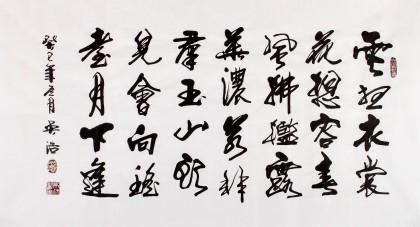 雲想衣裳
花想容春
風拂檻露
華濃若非
羣玉山頭
見會向瑤
臺月下逢
癸巳年 月 吳浩